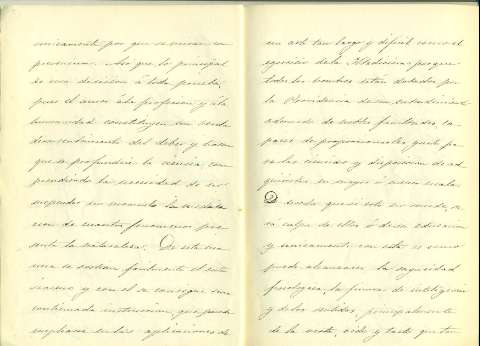 unicamente por que se crean en
presencia. Asi que lo principal
es una decision á toda prueba,
pues el amor á la profesion y á la
humanidad constituyen un
sentimiento del deber y hacen
que se profundice la ciencia, com
prendiendo la necesidad de no
suspender un momento la
cion de cuantos fenomenos pre
senta la naturaleza. De esta ma
nera se sostiene facilmente el entu
siasmo y con el se consigue una
continuada instruccion, que puede
emplearse en las aplicaciones de
un arte tan largo y dificil como el
ejercicio de la Medicina: porque
todos los hombres están dotados por
la Providencia de un entendimiento
adornado de nobles facultades ca-
paces de proporcionarles
las ciencias y disposicion de ad
quirirlas en mayor ó menor escala.
De modo que si esto no sucede, se
rá culpa de ellos ó de su educacion
y unicamente con esta es como
puede alcanzarse la seguridad
fisiologica, la firmeza de inteligencia
y de los sentidos, principalmente
de la vista, oido y tacto que tan